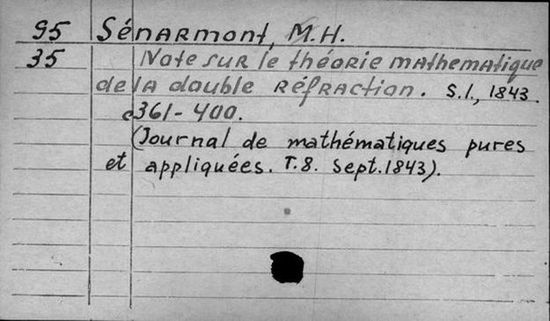 95 Sénarmont, M.H.
35 Note sur le théorie mathematique
de la double réfraction. S.l., 1843.
c361-400.
(Journal de mathématiques pures
et appliquées. T.8. Sept.1843).